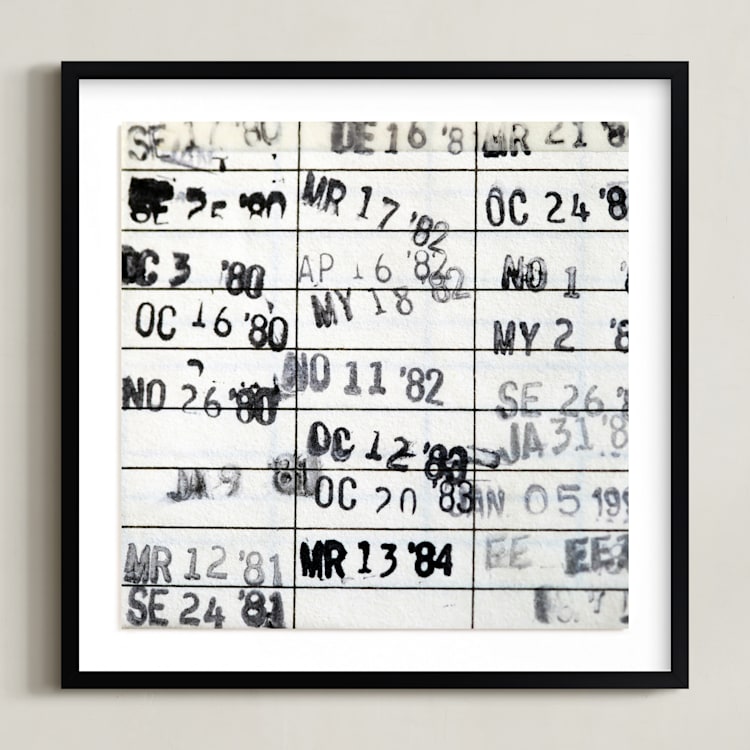 SE 17 '80
SE 25 '80
OC 3 '80
OC 16 '80
NO 26 '80
JA 9 '81
MR 12 '81
SE 24 '81
DE 16 '8
MR 17 '82
AP 16 '82
MY 18 '82
NO 11 '82
OC 12 '83
OC 20 '83
MR 13 '84
MR 21 '8
OC 24 '8
NO 1 '
MY 2 '8
SE 26 '
JA 31 '8
AN 05 199